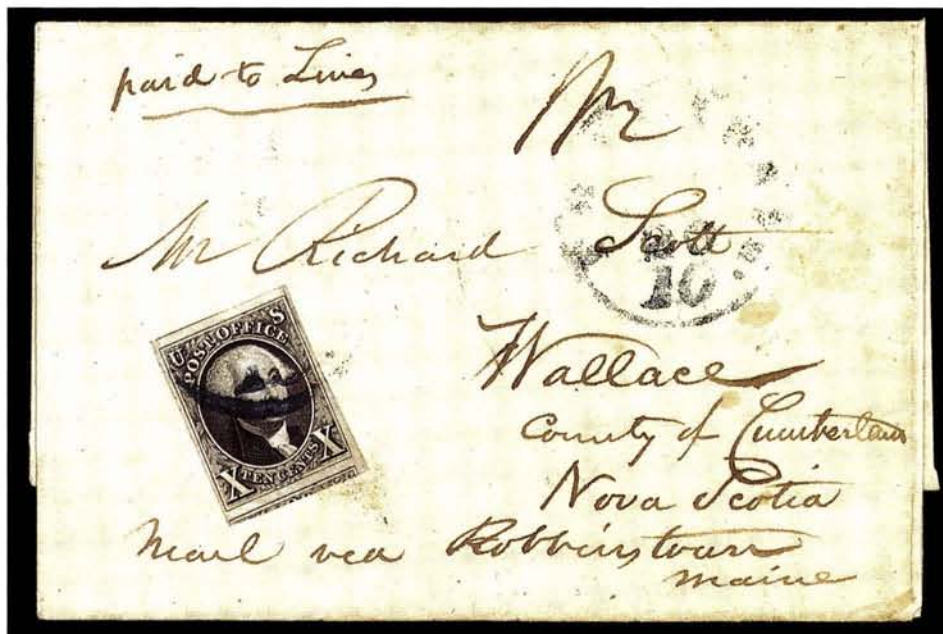 paid to Lines
Mr Richard Scott
10
U S
POST OFFICE
X TEN CENTS X
Wallace
County of Cumberland
Nova Scotia
Mail via Robbinstown
Maine